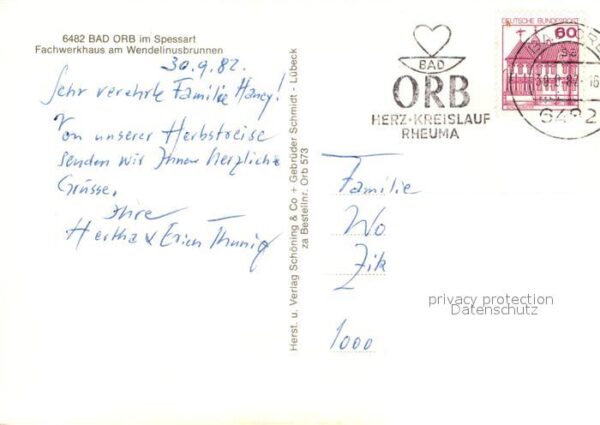 6482 BAD ORB im Spessart
Fachwerkhaus am Wendelinusbrunnen
30.9.82.
Sehr verehrte Familie Haney!
Von unserer Herbstreise
senden wir Ihnen herzliche
Grüsse.
Ihre
Hertha & Erich Thunig
Herst. u. Verlag Schöning & Co + Gebrüder Schmidt - Lübeck
za Bestellnr. Orb 573
BAD
ORB
HERZ·KREISLAUF
RHEUMA
DEUTSCHE BUNDESPOST
60
6482
Familie
Wo
Zik
1000
privacy protection
Datenschutz